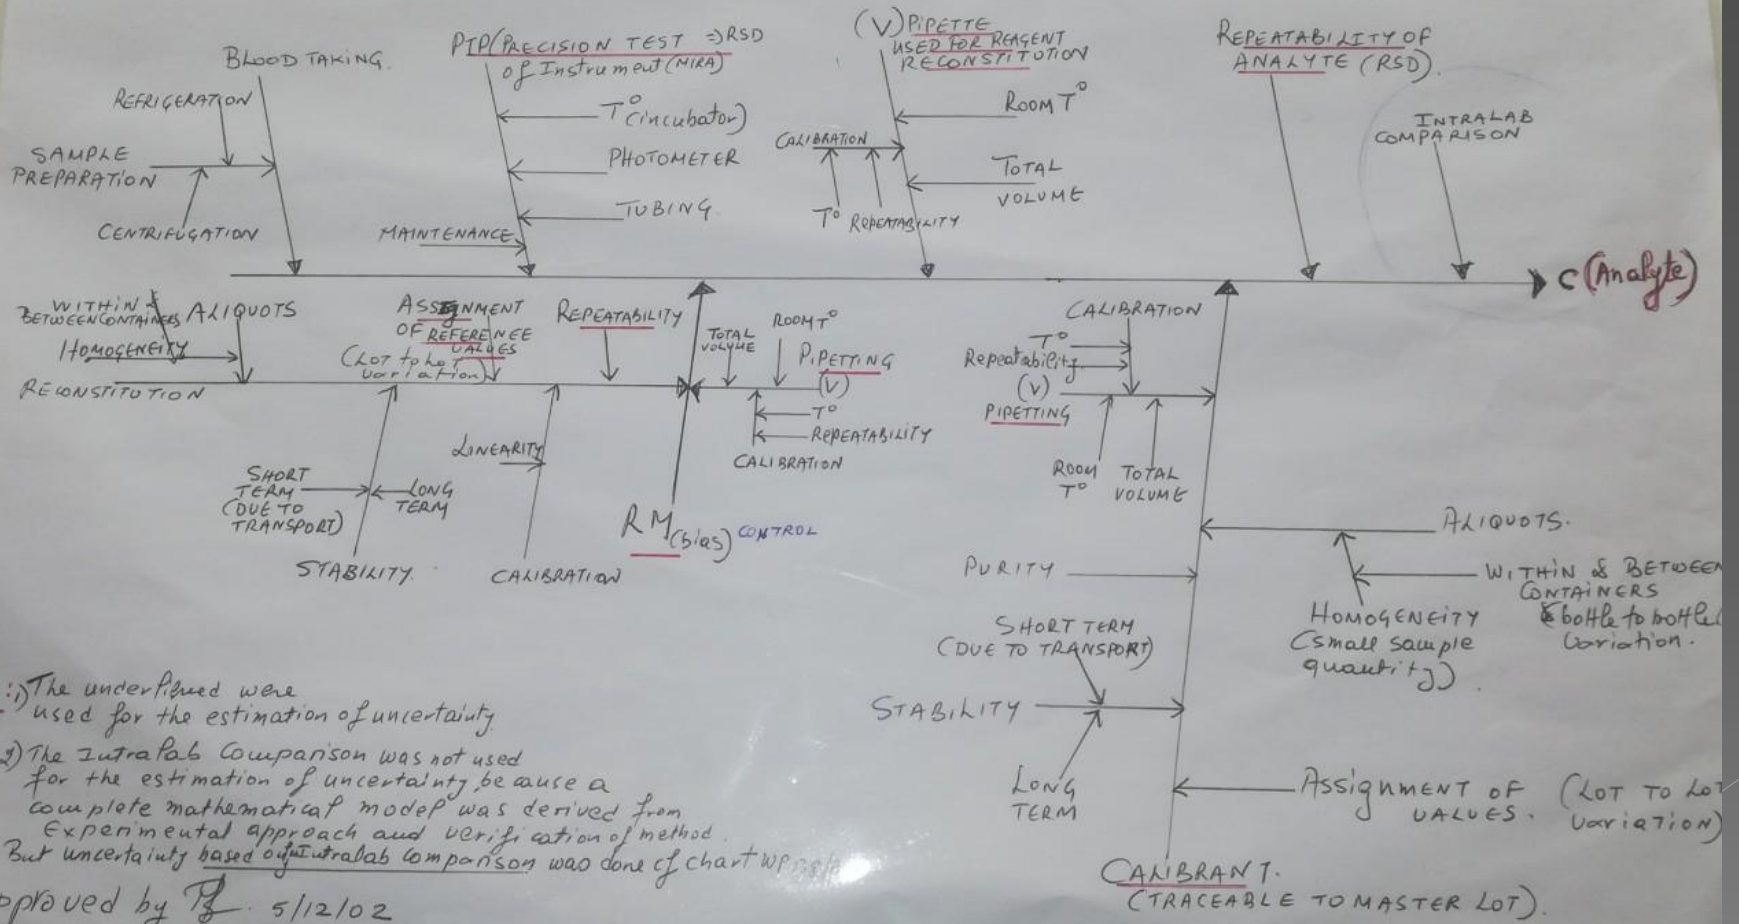 BLOOD TAKING.
REFRIGERATION
SAMPLE
PREPARATION
CENTRIFUGATION
PTP(PRECISION TEST ⇒RSD
of Instrument (MIRA)
T° (incubator)
PHOTOMETER
TUBING.
MAINTENANCE
(V) PIPETTE
USED FOR REAGENT
RECONSTITUTION
ROOM T°
CALIBRATION
TOTAL
VOLUME
T° REPEATABILITY
REPEATABILITY OF
ANALYTE (RSD).
INTRALAB
COMPARISON
C (Analyte)
WITHIN &
BETWEEN CONTAINERS
ALIQUOTS
HOMOGENEITY
RECONSTITUTION
ASSIGNMENT
OF REFERENCE
VALUES
(LOT to LOT
variation)
REPEATABILITY
TOTAL
VOLUME
ROOM T°
PIPETTING
(V)
T°
REPEATABILITY
CALIBRATION
LINEARITY
SHORT
TERM
(DUE TO
TRANSPORT)
LONG
TERM
STABILITY.
CALIBRATION
RM (bias) CONTROL
CALIBRATION
T°
Repeatability
(V)
PIPETTING
ROOM
T°
TOTAL
VOLUME
ALIQUOTS.
PURITY
WITHIN & BETWEEN
CONTAINERS
bottle to bottle
variation.
HOMOGENEITY
(small sample
quantity)
SHORT TERM
(DUE TO TRANSPORT)
STABILITY
LONG
TERM
ASSIGNMENT OF
VALUES.
(LOT TO LOT
variATION)
CALIBRANT.
(TRACEABLE TO MASTER LOT).
:1) The underlined were
used for the estimation of uncertainty.
2) The Intralab Comparison was not used
for the estimation of uncertainty, because a
complete mathematical model was derived from
Experimental approach and verification of method.
But uncertainty based on Intralab Comparison was done cf chart
pproved by 5/12/02